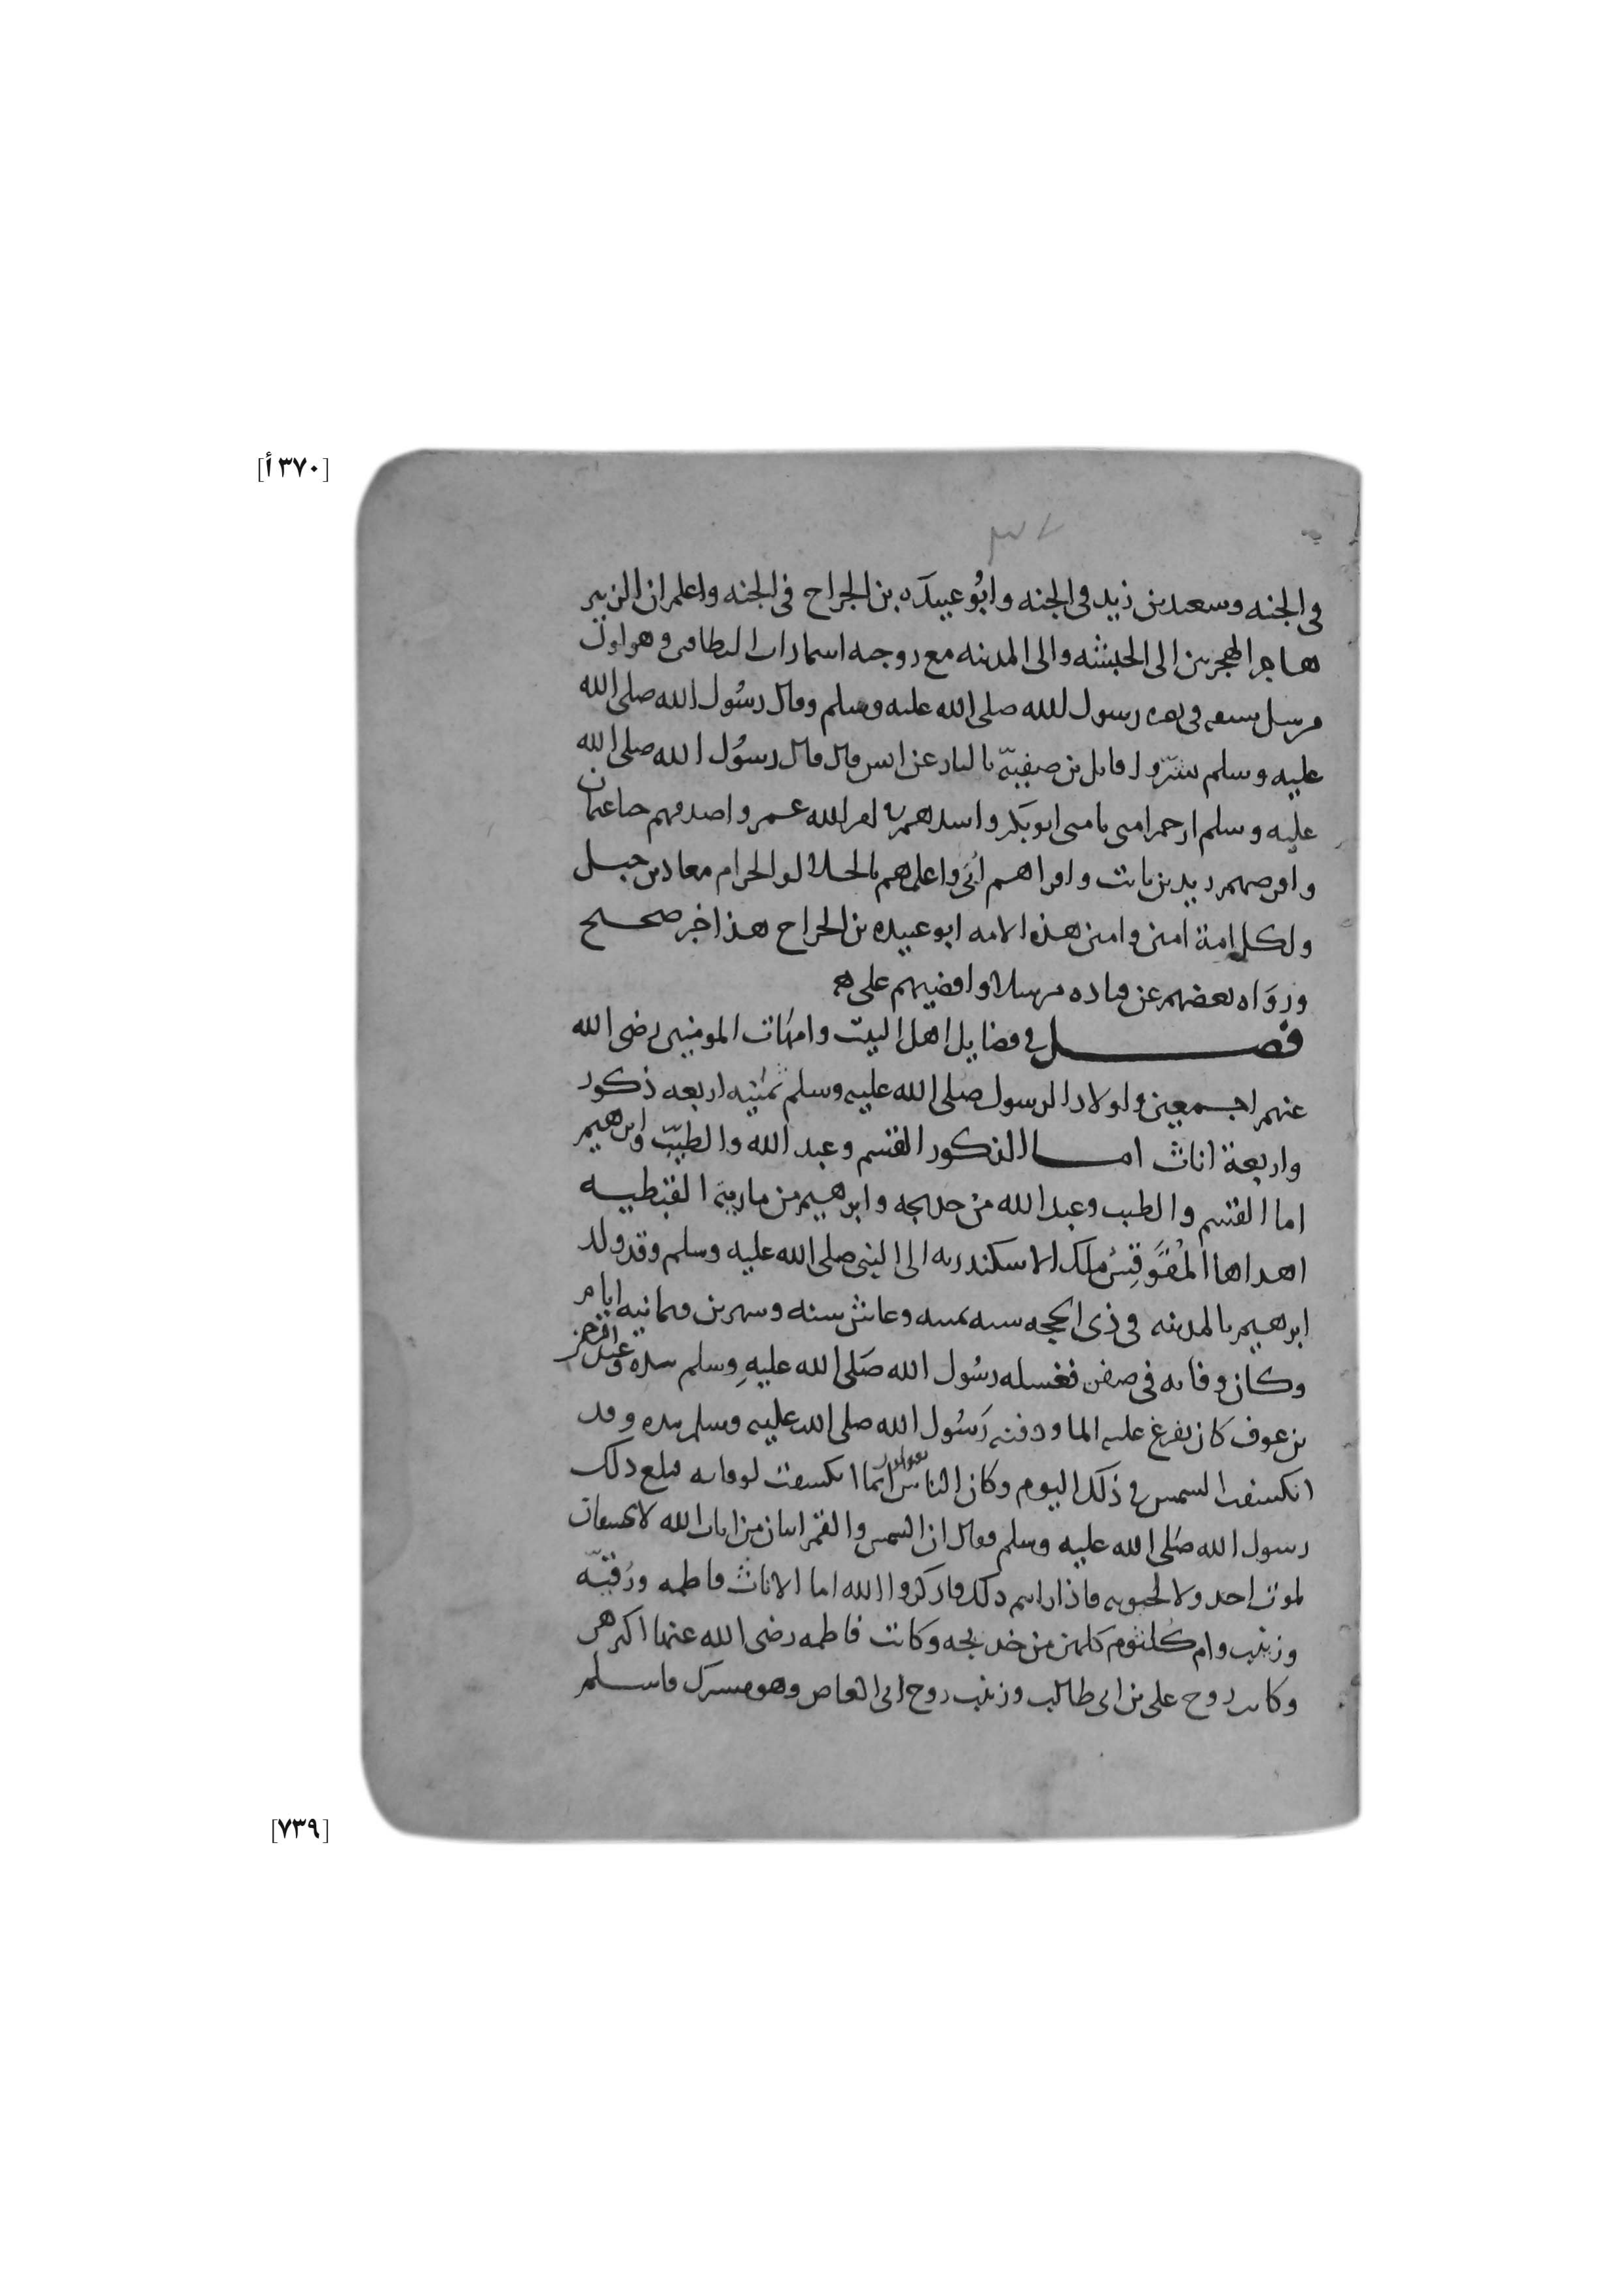 [٣٧٠أ]
في الجنه وسعيد بن زيد في الجنه وابُو عبيدَه بن الجراح في الجنه واعلم ان الزبير
هاجر الهجرتين الى الحبشه والى المدينه مع زوجه اسما ذات النطاقين وهو اول
من سل سيفه في رسول لله صلى الله عليه وسلم وقال رسُول الله صلى الله
عليه وسلم بشّروا قاتل بن صفيّه بالنار عن انس قال قال رسُول الله صلى الله
عليه وسلم ارحم امتي بامتي ابو بكر واشدهم لامر الله عمر واصدقهم حيا عثمان
وافرضهم زيد بن ثابت واقراهم اُبَي واعلمهم بالحلال والحرام معاذ بن جبل
ولكل امة امين وامين هذه الامه ابو عبيده بن الجراح هذا خبر صحيح
وروَاه بعضهم عن قتاده مرسلا واقضيهم على
فصل في فضايل اهل البيت وامهات المومنين رضى الله
عنهم اجمعين واولاد الرسول صلى الله عليه وسلم ثمنيه اربعه ذكور
واربعة اناث اما الذكور القسم وعبد الله والطيّب وابرهيم
اما القسم والطيب وعبد الله من خديجه وابرهيم من مارية القبطيه
اهداها المُقَوقِسُ ملك الاسكندريه الى النبي صلى الله عليه وسلم وقد ولد
ابرهيم بالمدينه في ذي الحجه سنه ثمنيه وعاش سنه وشهرين وثمانيه ايام
وكان وفاته في صفر فغسله رسُول الله صَلى الله عليهِ وسلم بيده وعبد الرحمن
بن عوف كان يفرغ عليه الما ودفنه رَسُول الله صلى الله عليه وسلم بيده وقد
انكسفت الشمس في ذلك اليوم وكان الناس يقولون انما انكسفت لوفاته فبلع ذلك
رسول الله صَلى الله عليه وسلم فقال ان الشمس والقمر ايتان من ايات الله لا يخسفان
لموت احد ولا لحيوته فاذا رايتم ذلك فاذكروا الله اما الاناث فاطمه ورُقيّه
وزينب وام كُلثوم كلهن من خديجه وكانت فاطمه رضى الله عنها اكبرهن
وكانت زوج على بن ابي طالب وزينب زوج ابي العاص وهو مشرك فاسلم
[٧٣٩]